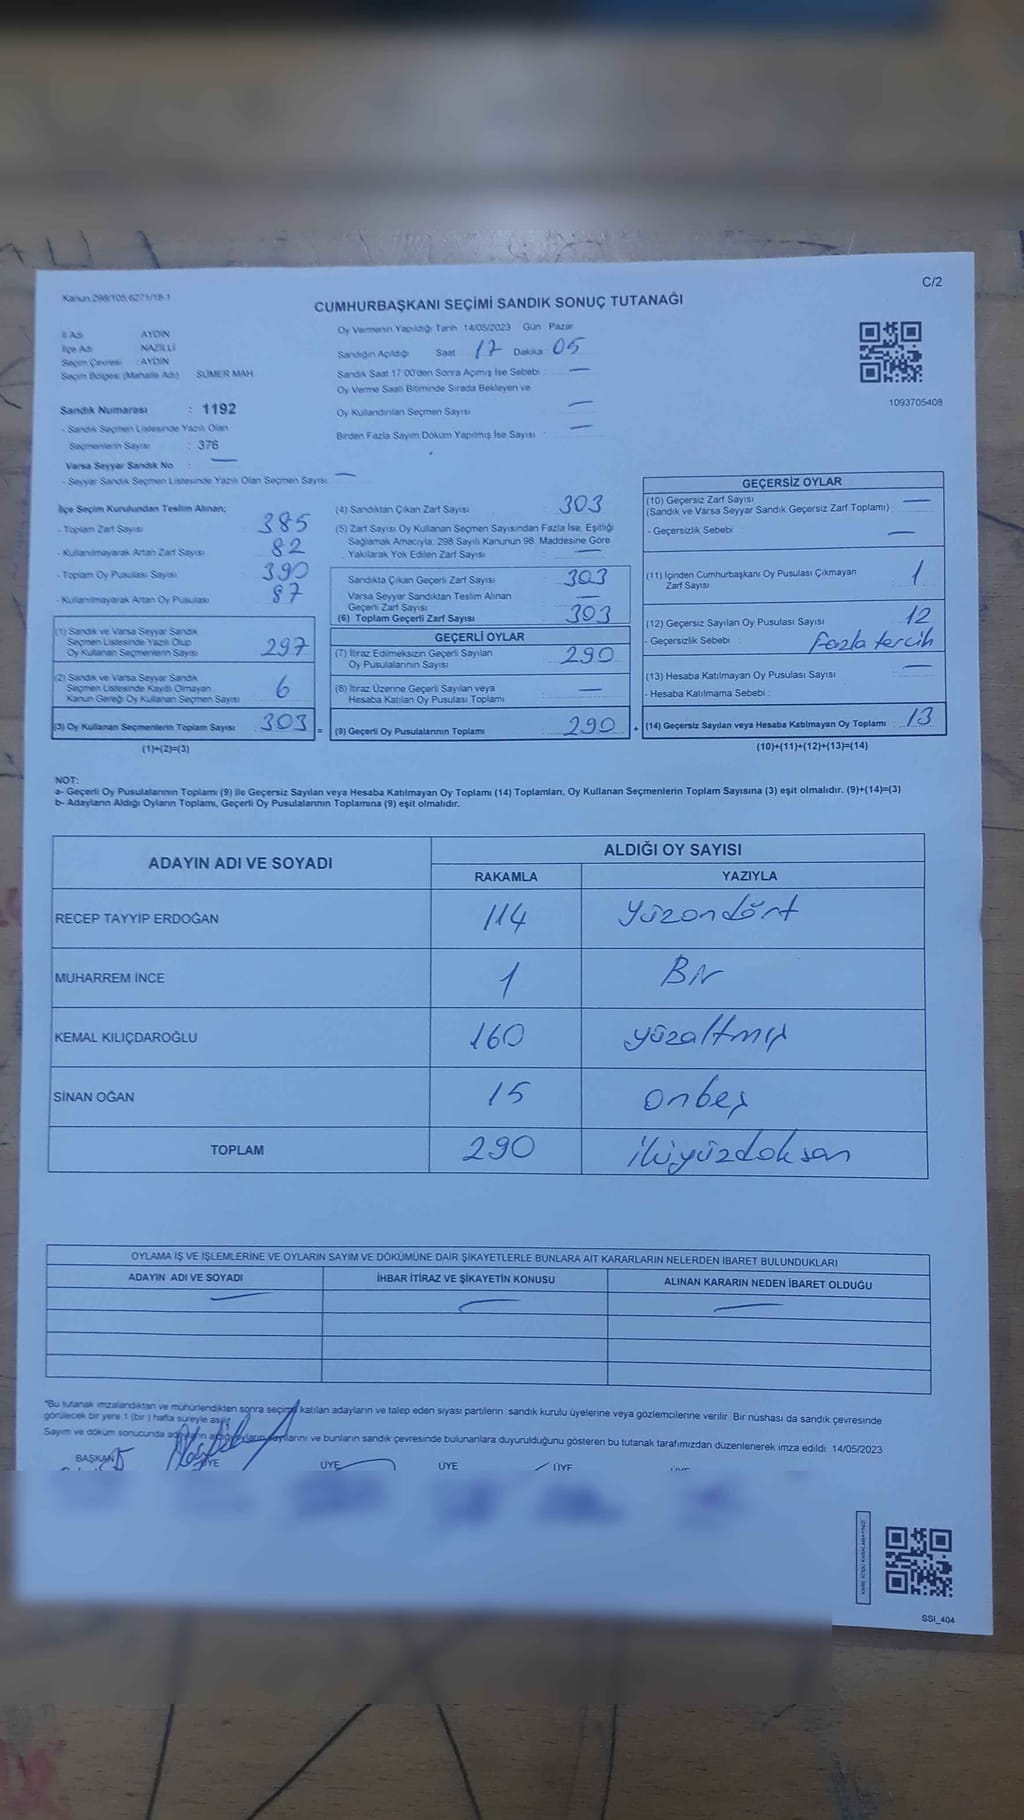 Kanun 298/105,6271/18-1
C/2
CUMHURBAŞKANI SEÇİMİ SANDIK SONUÇ TUTANAĞI
İl Adı AYDIN
İlçe Adı NAZİLLİ
Seçim Çevresi : AYDIN
Seçim Bölgesi (Mahalle Adı) SÜMER MAH
Sandık Numarası : 1192
- Sandık Seçmen Listesinde Yazılı Olan
Seçmenlerin Sayısı : 376
Varsa Seyyar Sandık No : —
- Seyyar Sandık Seçmen Listesinde Yazılı Olan Seçmen Sayısı —
Oy Vermenin Yapıldığı Tarih 14/05/2023 Gün Pazar
Sandığın Açıldığı Saat 17 Dakika 05
Sandık Saat 17:00'den Sonra Açımış İse Sebebi : —
Oy Verme Saati Bitiminde Sırada Bekleyen ve
Oy Kullandırılan Seçmen Sayısı —
Birden Fazla Sayım Döküm Yapılmış İse Sayısı : —
1093705408
İlçe Seçim Kurulundan Teslim Alınan;
- Toplam Zarf Sayısı 385
- Kullanılmayarak Artan Zarf Sayısı 82
- Toplam Oy Pusulası Sayısı 390
- Kullanılmayarak Artan Oy Pusulası 87
(1) Sandık ve Varsa Seyyar Sandık
Seçmen Listesinde Yazılı Olup
Oy Kullanan Seçmenlerin Sayısı 297
(2) Sandık ve Varsa Seyyar Sandık
Seçmen Listesinde Kayıtlı Olmayan
Kanun Gereği Oy Kullanan Seçmen Sayısı 6
(3) Oy Kullanan Seçmenlerin Toplam Sayısı 303 =
(1)+(2)=(3)
(4) Sandıktan Çıkan Zarf Sayısı 303
(5) Zarf Sayısı Oy Kullanan Seçmen Sayısından Fazla İse, Eşitliği
Sağlamak Amacıyla, 298 Sayılı Kanunun 98. Maddesine Göre
Yakılarak Yok Edilen Zarf Sayısı —
Sandıkta Çıkan Geçerli Zarf Sayısı 303
Varsa Seyyar Sandıktan Teslim Alınan
Geçerli Zarf Sayısı —
(6) Toplam Geçerli Zarf Sayısı 303
GEÇERLİ OYLAR
(7) İtiraz Edilmeksizin Geçerli Sayılan
Oy Pusulalarının Sayısı 290
(8) İtiraz Üzerine Geçerli Sayılan veya
Hesaba Katılan Oy Pusulası Toplamı —
(9) Geçerli Oy Pusulalarının Toplamı 290 +
GEÇERSİZ OYLAR
(10) Geçersiz Zarf Sayısı —
(Sandık ve Varsa Seyyar Sandık Geçersiz Zarf Toplamı)
- Geçersizlik Sebebi : —
(11) İçinden Cumhurbaşkanı Oy Pusulası Çıkmayan
Zarf Sayısı 1
(12) Geçersiz Sayılan Oy Pusulası Sayısı 12
- Geçersizlik Sebebi : Fazla tercih
(13) Hesaba Katılmayan Oy Pusulası Sayısı —
- Hesaba Katılmama Sebebi :
(14) Geçersiz Sayılan veya Hesaba Katılmayan Oy Toplamı : 13
(10)+(11)+(12)+(13)=(14)
NOT:
a- Geçerli Oy Pusulalarının Toplamı (9) ile Geçersiz Sayılan veya Hesaba Katılmayan Oy Toplamı (14) Toplamları, Oy Kullanan Seçmenlerin Toplam Sayısına (3) eşit olmalıdır. (9)+(14)=(3)
b- Adayların Aldığı Oyların Toplamı, Geçerli Oy Pusulalarının Toplamına (9) eşit olmalıdır.
ADAYIN ADI VE SOYADI ALDIĞI OY SAYISI
RAKAMLA YAZIYLA
RECEP TAYYİP ERDOĞAN 114 Yüzondört
MUHARREM İNCE 1 Bir
KEMAL KILIÇDAROĞLU 160 yüzaltmış
SİNAN OĞAN 15 onbeş
TOPLAM 290 ikiyüzdoksan
OYLAMA İŞ VE İŞLEMLERİNE VE OYLARIN SAYIM VE DÖKÜMÜNE DAİR ŞİKAYETLERLE BUNLARA AİT KARARLARIN NELERDEN İBARET BULUNDUKLARI
ADAYIN ADI VE SOYADI İHBAR İTİRAZ VE ŞİKAYETİN KONUSU ALINAN KARARIN NEDEN İBARET OLDUĞU
— — —
*Bu tutanak imzalandıktan ve mühürlendikten sonra seçime katılan adayların ve talep eden siyasi partilerin sandık kurulu üyelerine veya gözlemcilerine verilir. Bir nüshası da sandık çevresinde
görülecek bir yere 1 (bir) hafta süreyle asılır.
Sayım ve döküm sonucunda adayların aldığı oyların sayılarını ve bunların sandık çevresinde bulunanlara duyurulduğunu gösteren bu tutanak tarafımızdan düzenlenerek imza edildi 14/05/2023
BAŞKAN ÜYE ÜYE ÜYE ÜYE
SSI_404